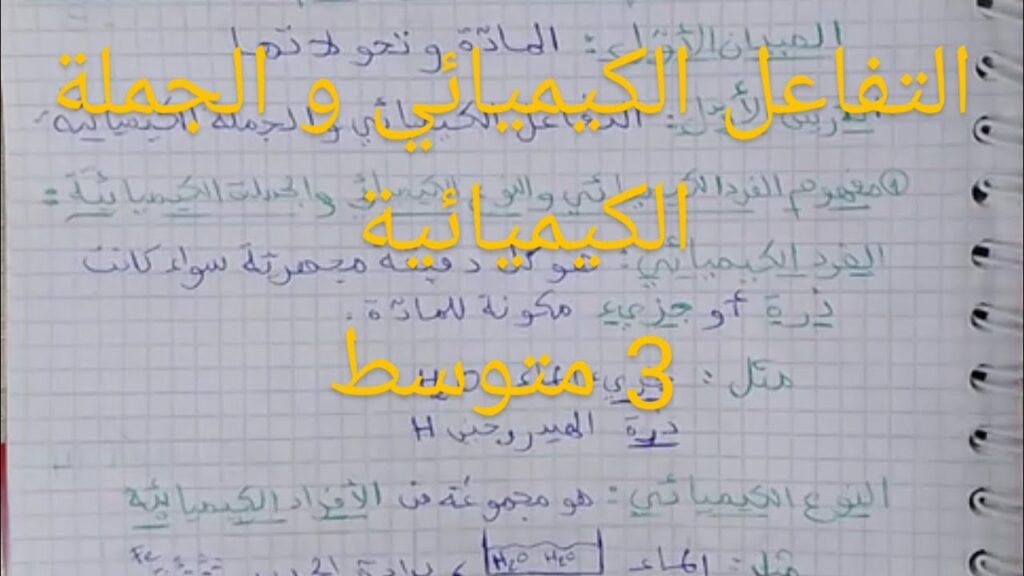 التفاعل الكيميائي و الجملة
الكيميائية
3 متوسط
الميدان الأول: المادة و تحولاتها
الدرس الأول: التفاعل الكيميائي والجملة الكيميائية
① مفهوم الفرد الكيميائي والنوع الكيميائي والجملة الكيميائية:
الفرد الكيميائي: هو كل دقيقة مجهرية سواء كانت
ذرة أو جزيء مكونة للمادة.
مثل: جزيء الماء H₂O
ذرة الهيدروجين H
النوع الكيميائي: هو مجموعة من الأفراد الكيميائية
مثل: الماء H₂O H₂O ، برادة الحديد Fe